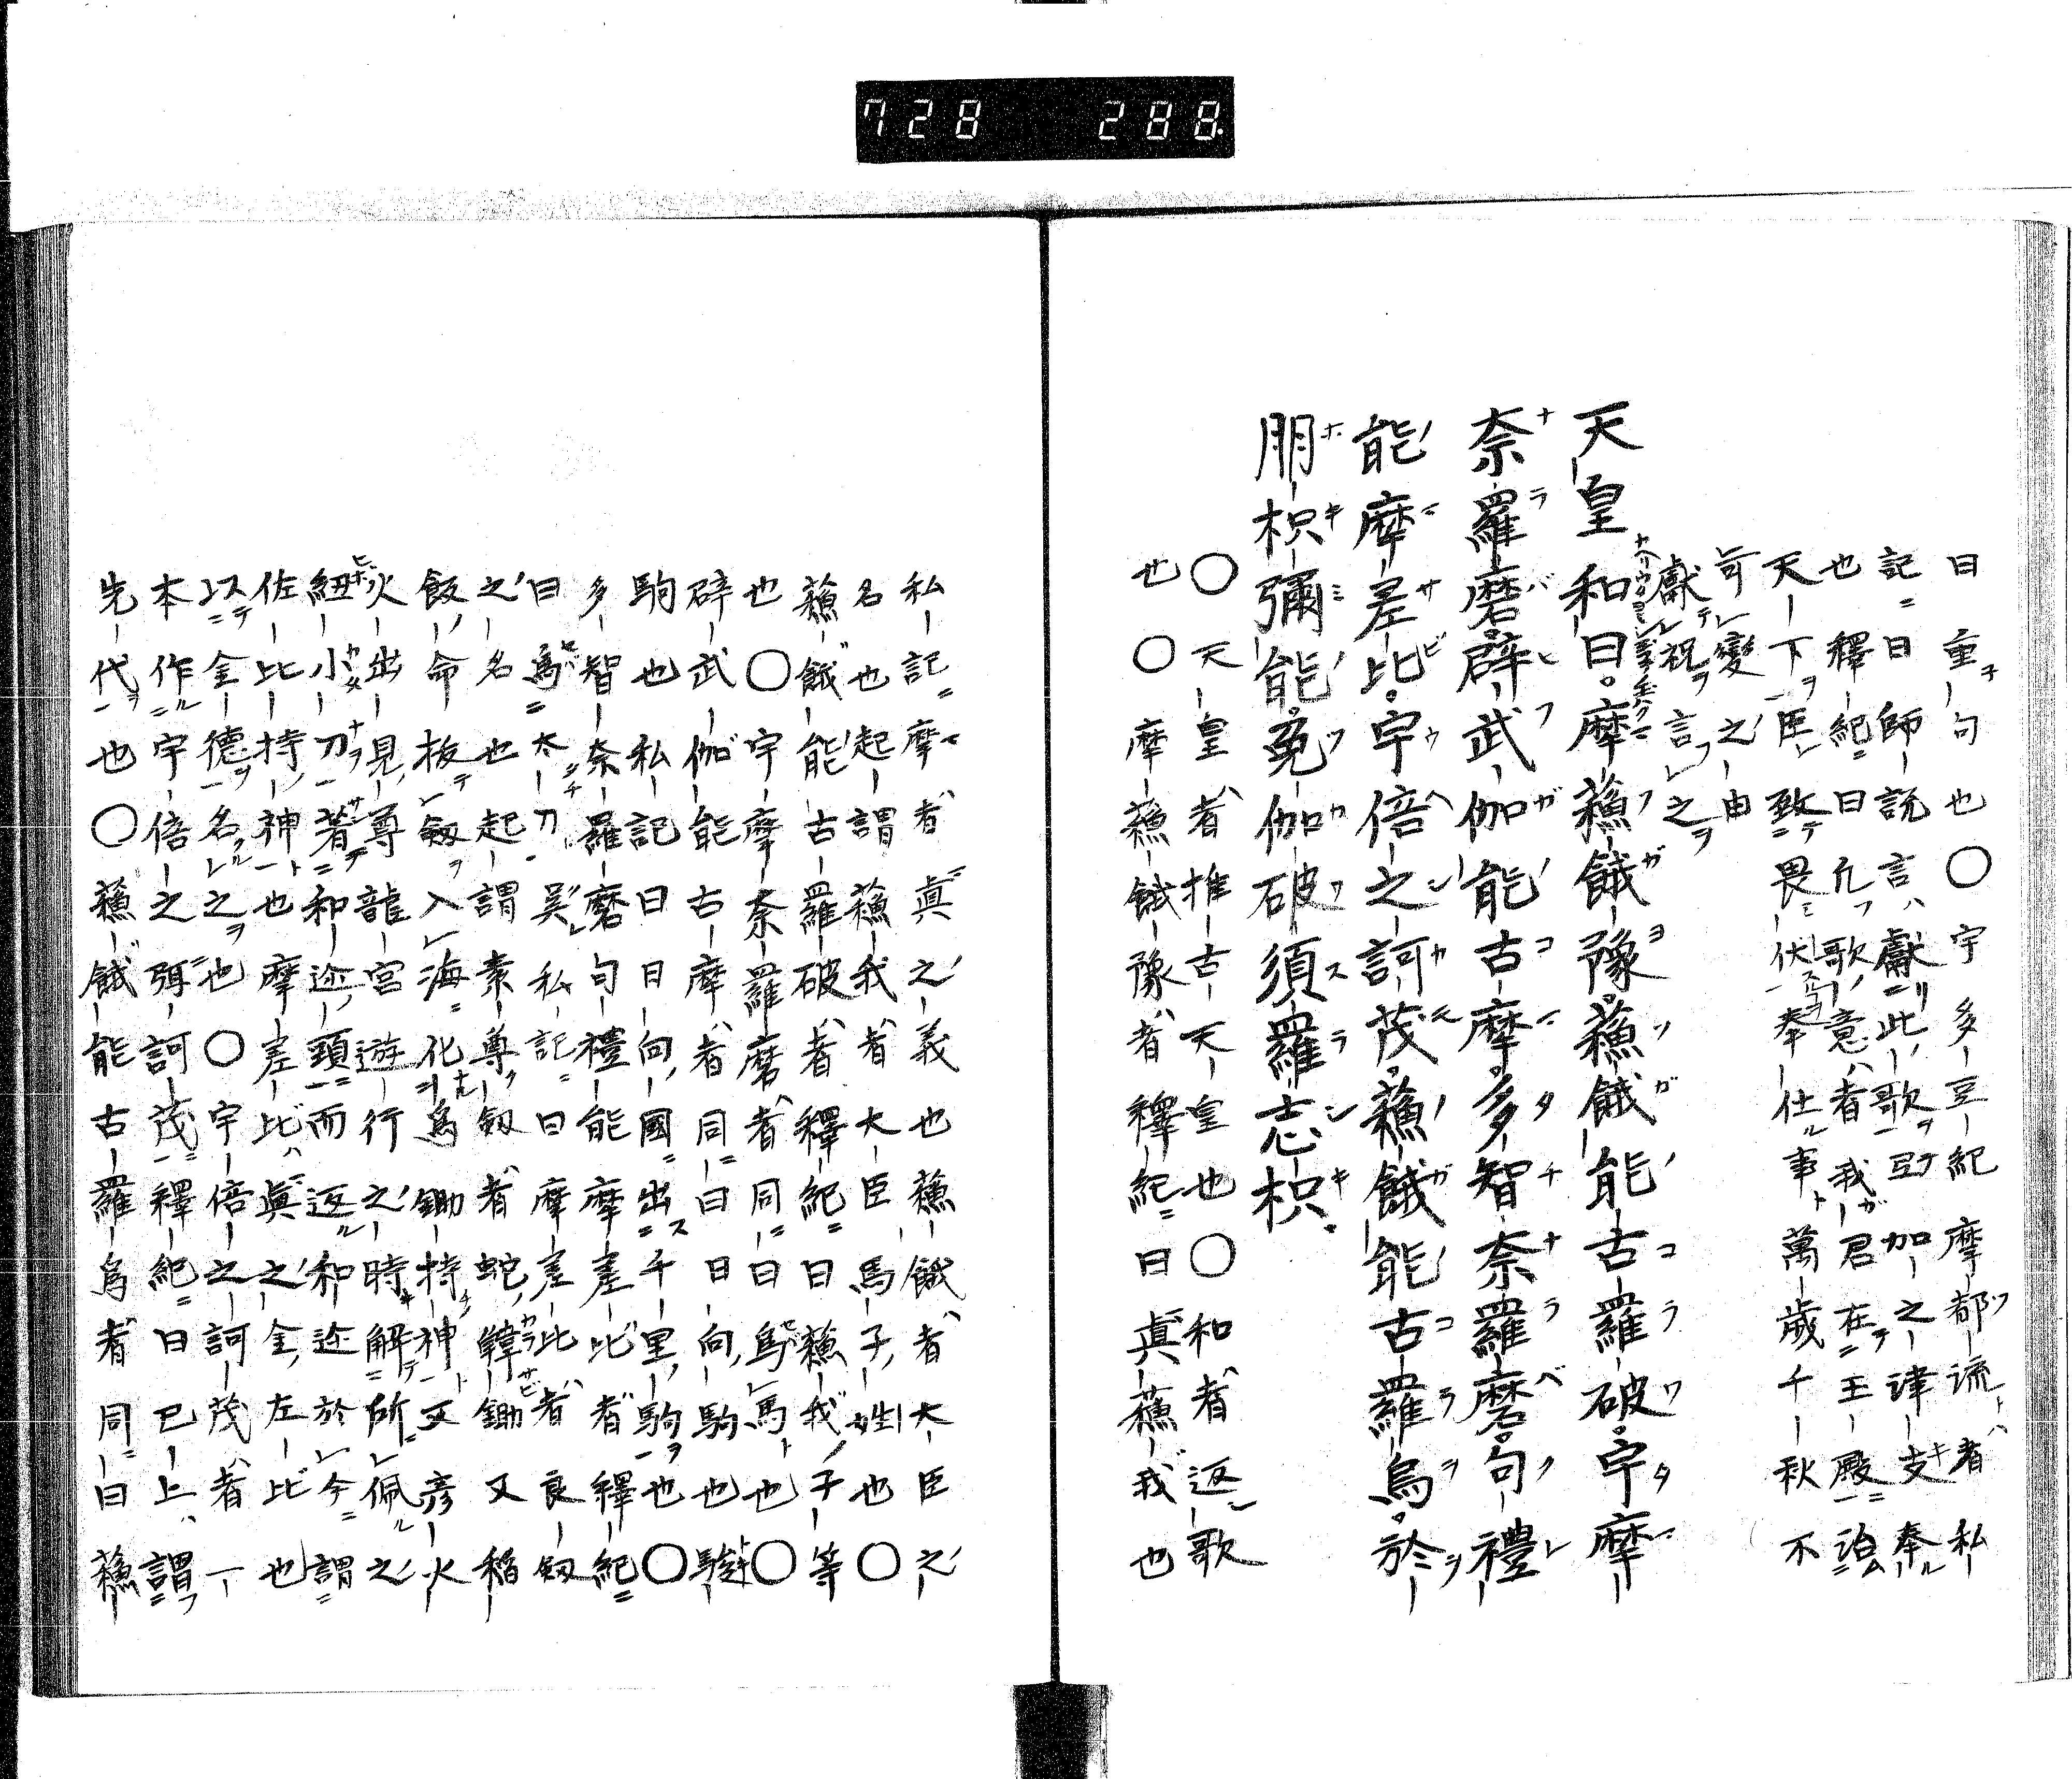 728 288.
曰重句也〇宇多豆紀摩都流者私
記曰師說言獻此歌㆑加之津支奉
也釋紀曰凡歌意者我君在王殿治
天下臣致畏伏奉仕事萬歲千秋不
可變之由
獻祝言之
天皇和曰。摩蘓餓豫。蘓餓能古羅破。宇摩
奈羅磨。辟武伽能古摩。多智奈羅磨。句禮
能摩差比。宇倍之訶茂。蘓餓能古羅烏。於
朋枳彌能。兎伽破須羅志枳。
〇天皇者推古天皇也〇和者返歌
也〇摩蘓餓豫者釋紀曰眞蘓我也
私記摩者眞之義也蘓餓者大臣之
名也起謂蘓我者大臣馬子姓也〇
蘓餓能古羅破者釋紀曰蘓我子等
也〇宇摩奈羅磨者同曰爲馬也〇
辟武伽能古摩者同曰日向駒也
駒也私記曰日向國出千里駒也〇
多智奈羅磨句禮能摩差比者釋紀
曰爲太刀。吳私記曰摩差比者良劔
之名也起謂素尊劔者蛇韓鋤又稻
飯命拔劔入海化爲鋤持神又彥火
火出見尊龍宮遊行之時解所佩之
紐小刀著和迩頸而返和迩於今謂
佐比持神也摩差比眞之金左比也
以金德名之也〇宇倍之訶茂者一
本作宇倍之弭訶茂釋紀曰已上謂
先代也〇蘓餓能古羅烏者同曰蘓